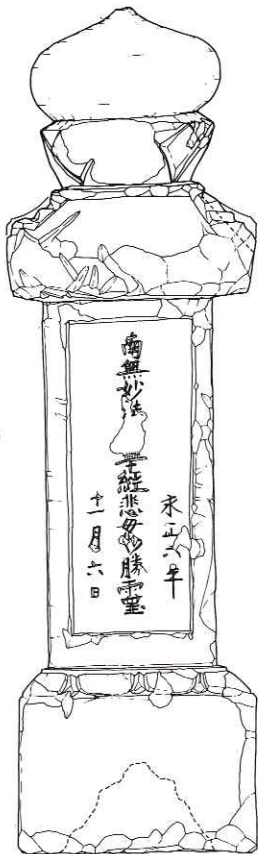 永正六年
南無妙法華經悲母妙勝霊
十一月六日